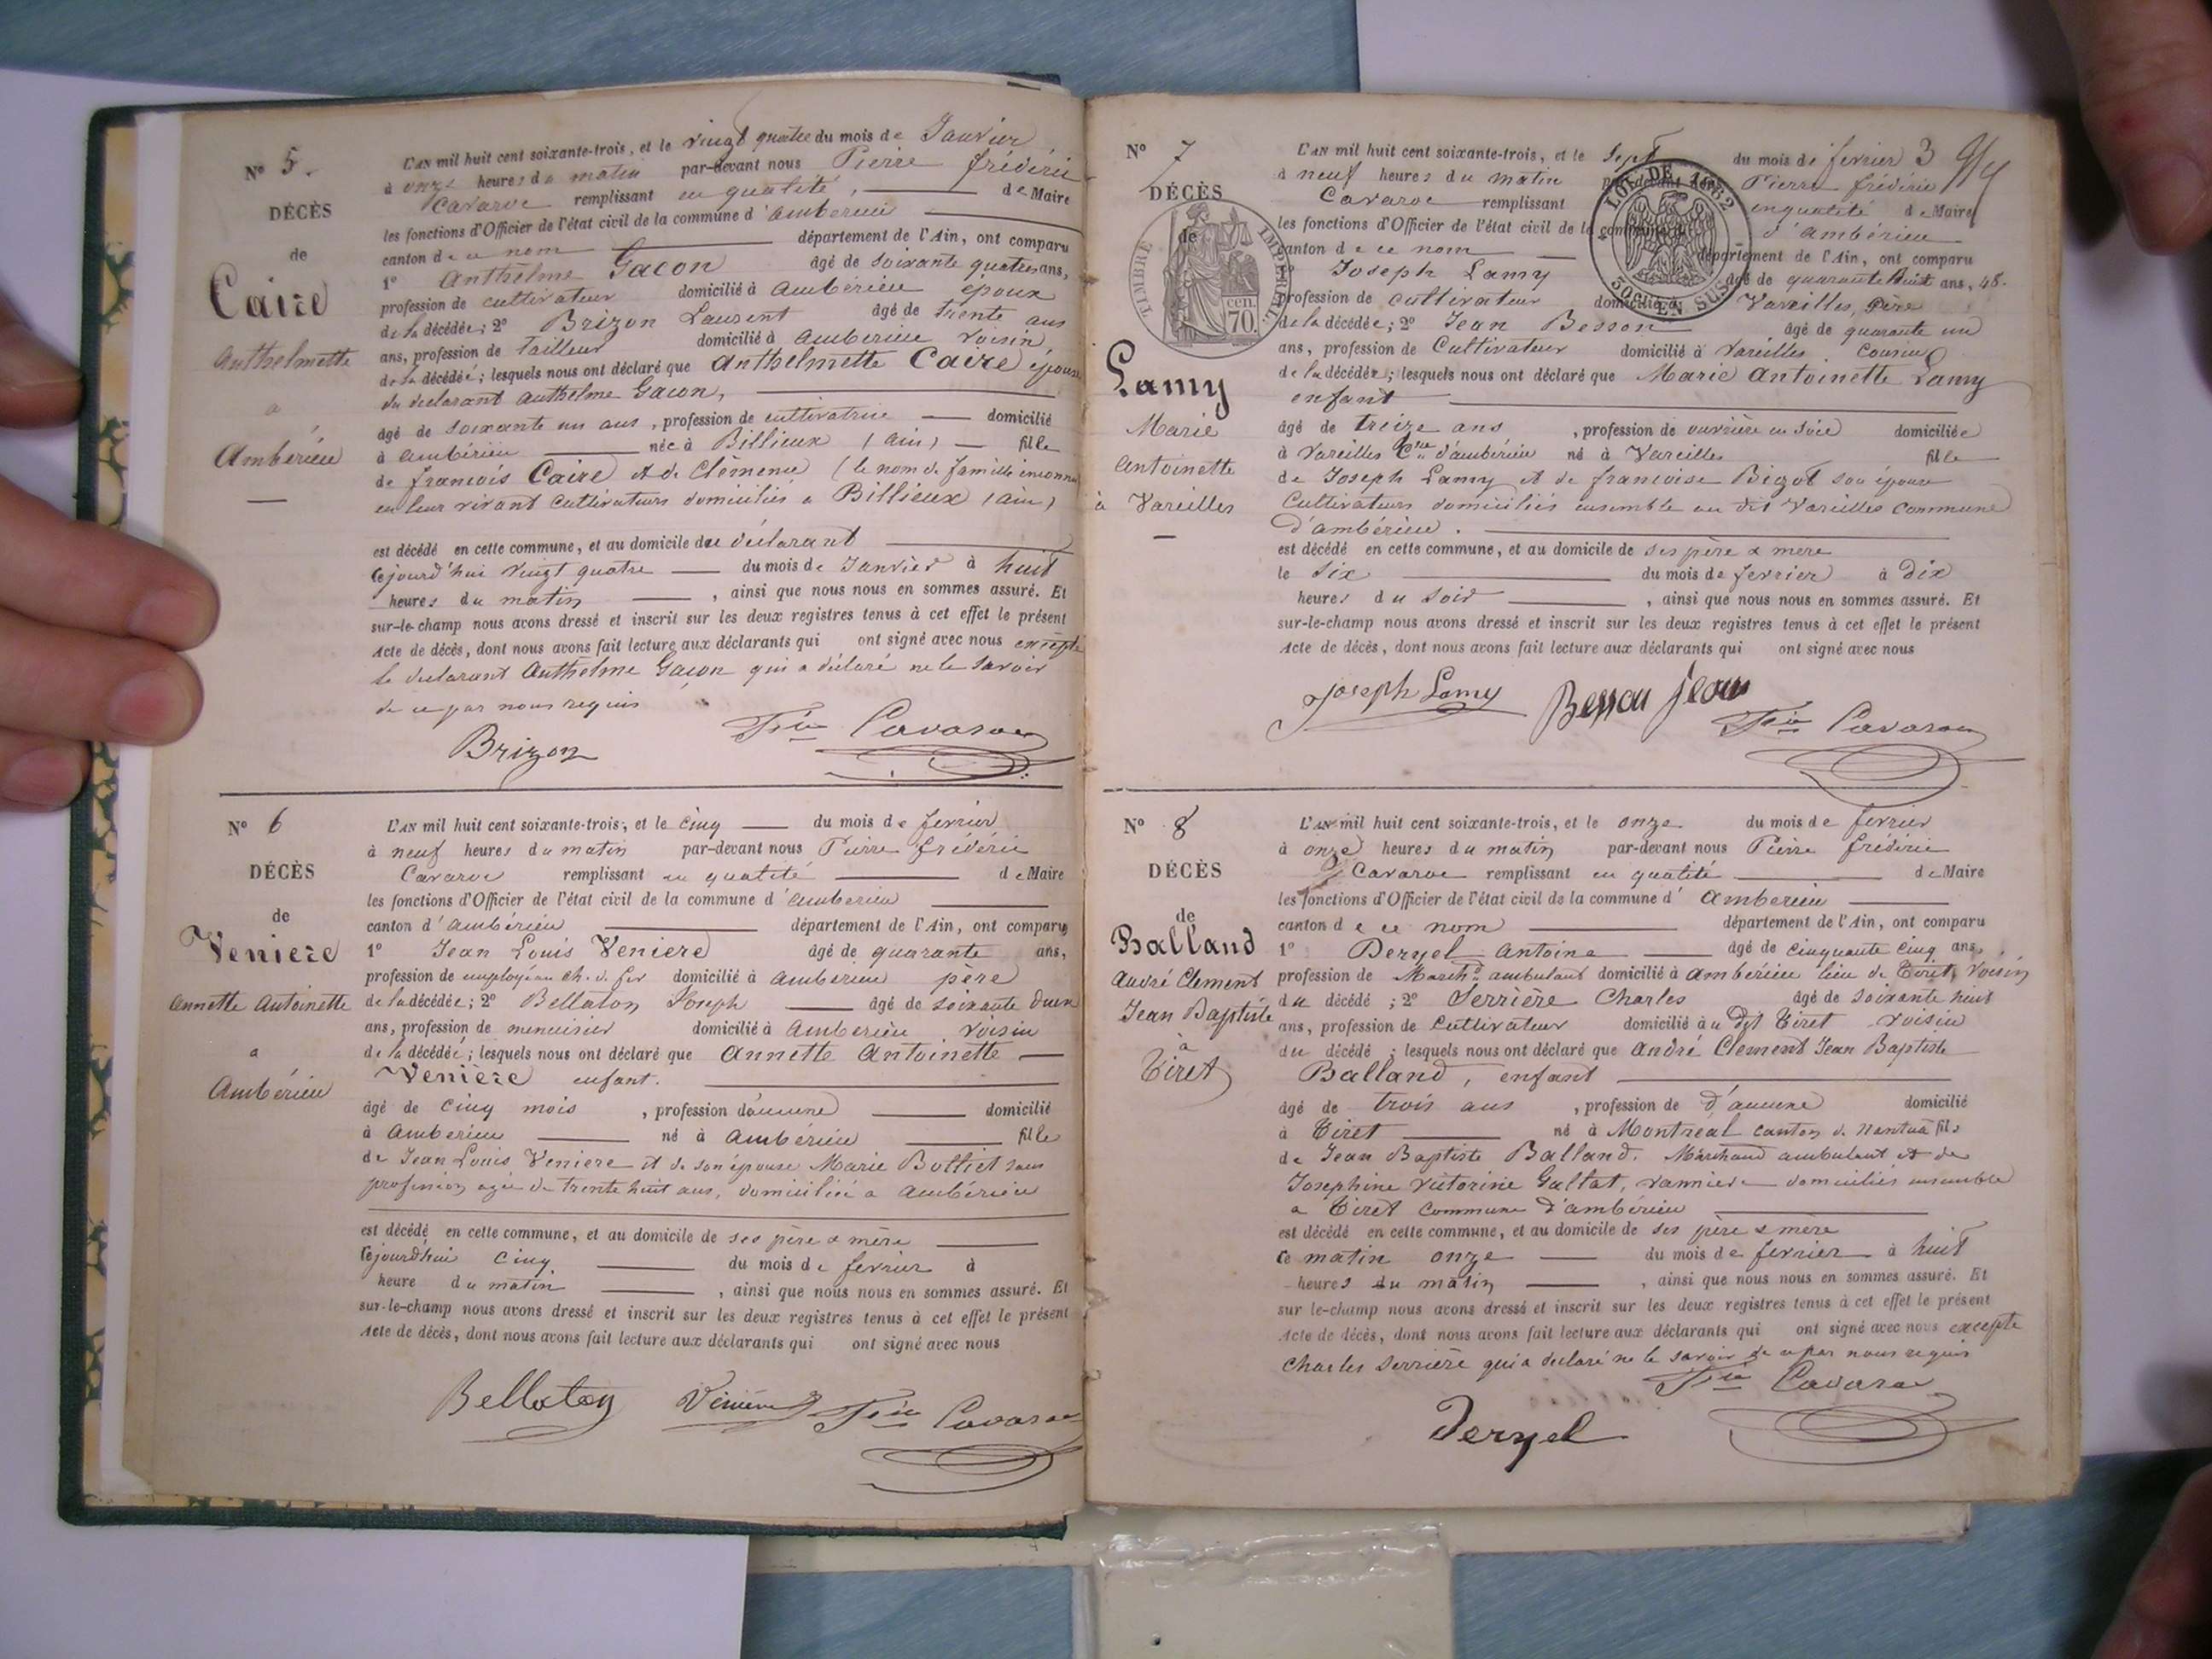 N° 5.
DÉCÈS
de
Caire
Anthelmette
a
Ambérieu
L'AN mil huit cent soixante-trois, et le vingt quatre du mois de Janvier
à onze heures du matin par-devant nous Pierre frédéric
Cavaroc remplissant en qualité, de Maire
les fonctions d'Officier de l'état civil de la commune d'amberieu
canton de ce nom département de l'Ain, ont comparu
1° Anthelme Gacon âgé de soixante quatre ans,
profession de cultivateur domicilié à ambérieu epoux
de la décédée; 2° Brizon Laurent âgé de trente ans
ans, profession de tailleur domicilié à amberieu voisin
de la décédée; lesquels nous ont déclaré que Anthelmette Caire épouse
du declarant anthelme Gacon,
âgé de soixante un ans, profession de cultivatrice domicilié
à ambérieu née à Billieux (ain) fille
de francois Caire et de Clémence (le nom de famille inconnu
en leur vivant cultivateurs domiciliés a Billieux (ain)
est décédé en cette commune, et au domicile du déclarant
cejourd'hui vingt quatre du mois de Janvier à huit
heures du matin, ainsi que nous nous en sommes assuré. Et
sur-le-champ nous avons dressé et inscrit sur les deux registres tenus à cet effet le présent
Acte de décès, dont nous avons fait lecture aux déclarants qui ont signé avec nous excepte
le declarant anthelme Gacon qui a déclaré ne le savoir
de ce par nous requis
Brizon Fric Cavaroc
N° 6
DÉCÈS
de
Veniere
annette Antoinette
a
Ambérieu
L'AN mil huit cent soixante-trois, et le cinq du mois de fevrier
à neuf heures du matin par-devant nous Pierre frédéric
Cavaroc remplissant en qualité de Maire
les fonctions d'Officier de l'état civil de la commune d'amberieu
canton d'ambérieu département de l'Ain, ont comparu
1° Jean Louis Veniere âgé de quarante ans,
profession de employé au ch. d. fer domicilié à amberieu père
de la décédée; 2° Bellaton Joseph âgé de soixante deux
ans, profession de menuisier domicilié à amberieu voisin
de la décédée; lesquels nous ont déclaré que annette antoinette
Venière enfant.
âgé de cinq mois, profession d'aucune domicilié
à amberieu né à ambérieu fille
de Jean Louis Veniere et de son épouse Marie Bolliet sans
profession agée de trente huit ans, domiciliée a ambérieu
est décédé en cette commune, et au domicile de ses père & mère
cejourd'hui cinq du mois de fevrier à
heure du matin, ainsi que nous nous en sommes assuré. Et
sur-le-champ nous avons dressé et inscrit sur les deux registres tenus à cet effet le présent
Acte de décès, dont nous avons fait lecture aux déclarants qui ont signé avec nous
Bellaton Venière Fric Cavaroc
N° 7
DÉCÈS
de
TIMBRE IMPÉRIAL
70 cen.
Lamy
Marie
antoinette
à Vareilles
LOI DE 1862
50 C. EN SUS
L'AN mil huit cent soixante-trois, et le sept du mois de fevrier 3
à neuf heures du matin par-devant nous Pierre frédéric
Cavaroc remplissant en qualité de Maire
les fonctions d'Officier de l'état civil de la commune d'ambérieu
canton de ce nom département de l'Ain, ont comparu
1° Joseph Lamy âgé de quarante huit ans, 48.
profession de cultivateur domicilié à Vareilles, père
de la décédée; 2° Jean Besson âgé de quarante un
ans, profession de Cultivateur domicilié à Vareilles. cousin
de la décédée; lesquels nous ont déclaré que Marie antoinette Lamy
enfant
âgé de treize ans, profession de ouvrière en soie domiciliée
à Vareilles Cne d'ambérieu né à Vareilles fille
de Joseph Lamy et de francoise Bigot son épouse
Cultivateurs domiciliés ensemble au dit Vareilles commune
d'ambérieu.
est décédé en cette commune, et au domicile de ses père & mère
le six du mois de fevrier à dix
heures du soir, ainsi que nous nous en sommes assuré. Et
sur-le-champ nous avons dressé et inscrit sur les deux registres tenus à cet effet le présent
Acte de décès, dont nous avons fait lecture aux déclarants qui ont signé avec nous
Joseph Lamy Besson Jean Fric Cavaroc
N° 8
DÉCÈS
de
Balland
André Clement
Jean Baptiste
à
Tiret
L'AN mil huit cent soixante-trois, et le onze du mois de fevrier
à onze heures du matin par-devant nous Pierre frédéric
Cavaroc remplissant en qualité de Maire
les fonctions d'Officier de l'état civil de la commune d'Amberieu
canton de ce nom département de l'Ain, ont comparu
1° Deryel Antoine âgé de cinquante cinq ans,
profession de Marchd ambulant domicilié à ambérieu lieu de Tiret, voisin
du décédé; 2° Serrière Charles âgé de soixante huit
ans, profession de Cultivateur domicilié au dit Tiret voisin
du décédé; lesquels nous ont déclaré que andré Clement Jean Baptiste
Balland, enfant
âgé de trois ans, profession de d'aucune domicilié
à Tiret né à Montréal canton de Nantua fils
de Jean Baptiste Balland. Marchand ambulant et de
Josephine victorine Galtat, vannière domiciliés ensemble
a Tiret commune d'ambérieu
est décédé en cette commune, et au domicile de ses père & mère
ce matin onze du mois de fevrier à huit
heures du matin, ainsi que nous nous en sommes assuré. Et
sur le-champ nous avons dressé et inscrit sur les deux registres tenus à cet effet le présent
Acte de décès, dont nous avons fait lecture aux déclarants qui ont signé avec nous excepte
Charles Serrière qui a declaré ne le savoir de ce par nous requis
Deryel Fric Cavaroc